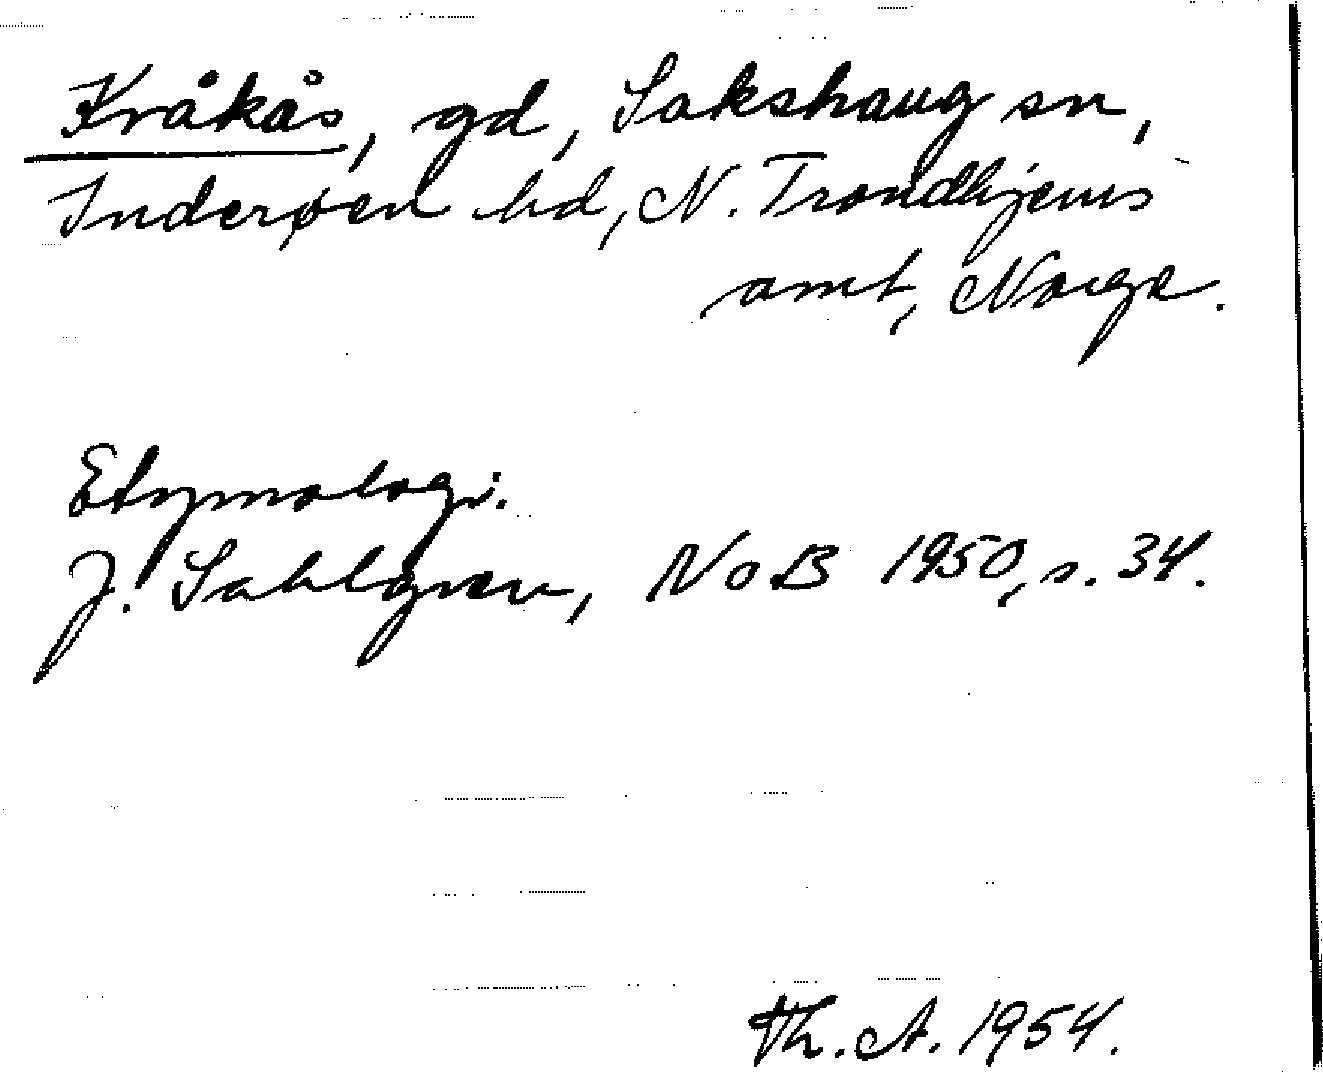 Kråkås, gd, Sakshaug sn,
Inderøen hd, N. Trondhjems
amt, Norge.
Etymologi.
J. Sahlgren, NoB 1950, s. 34.
Th. A. 1954.